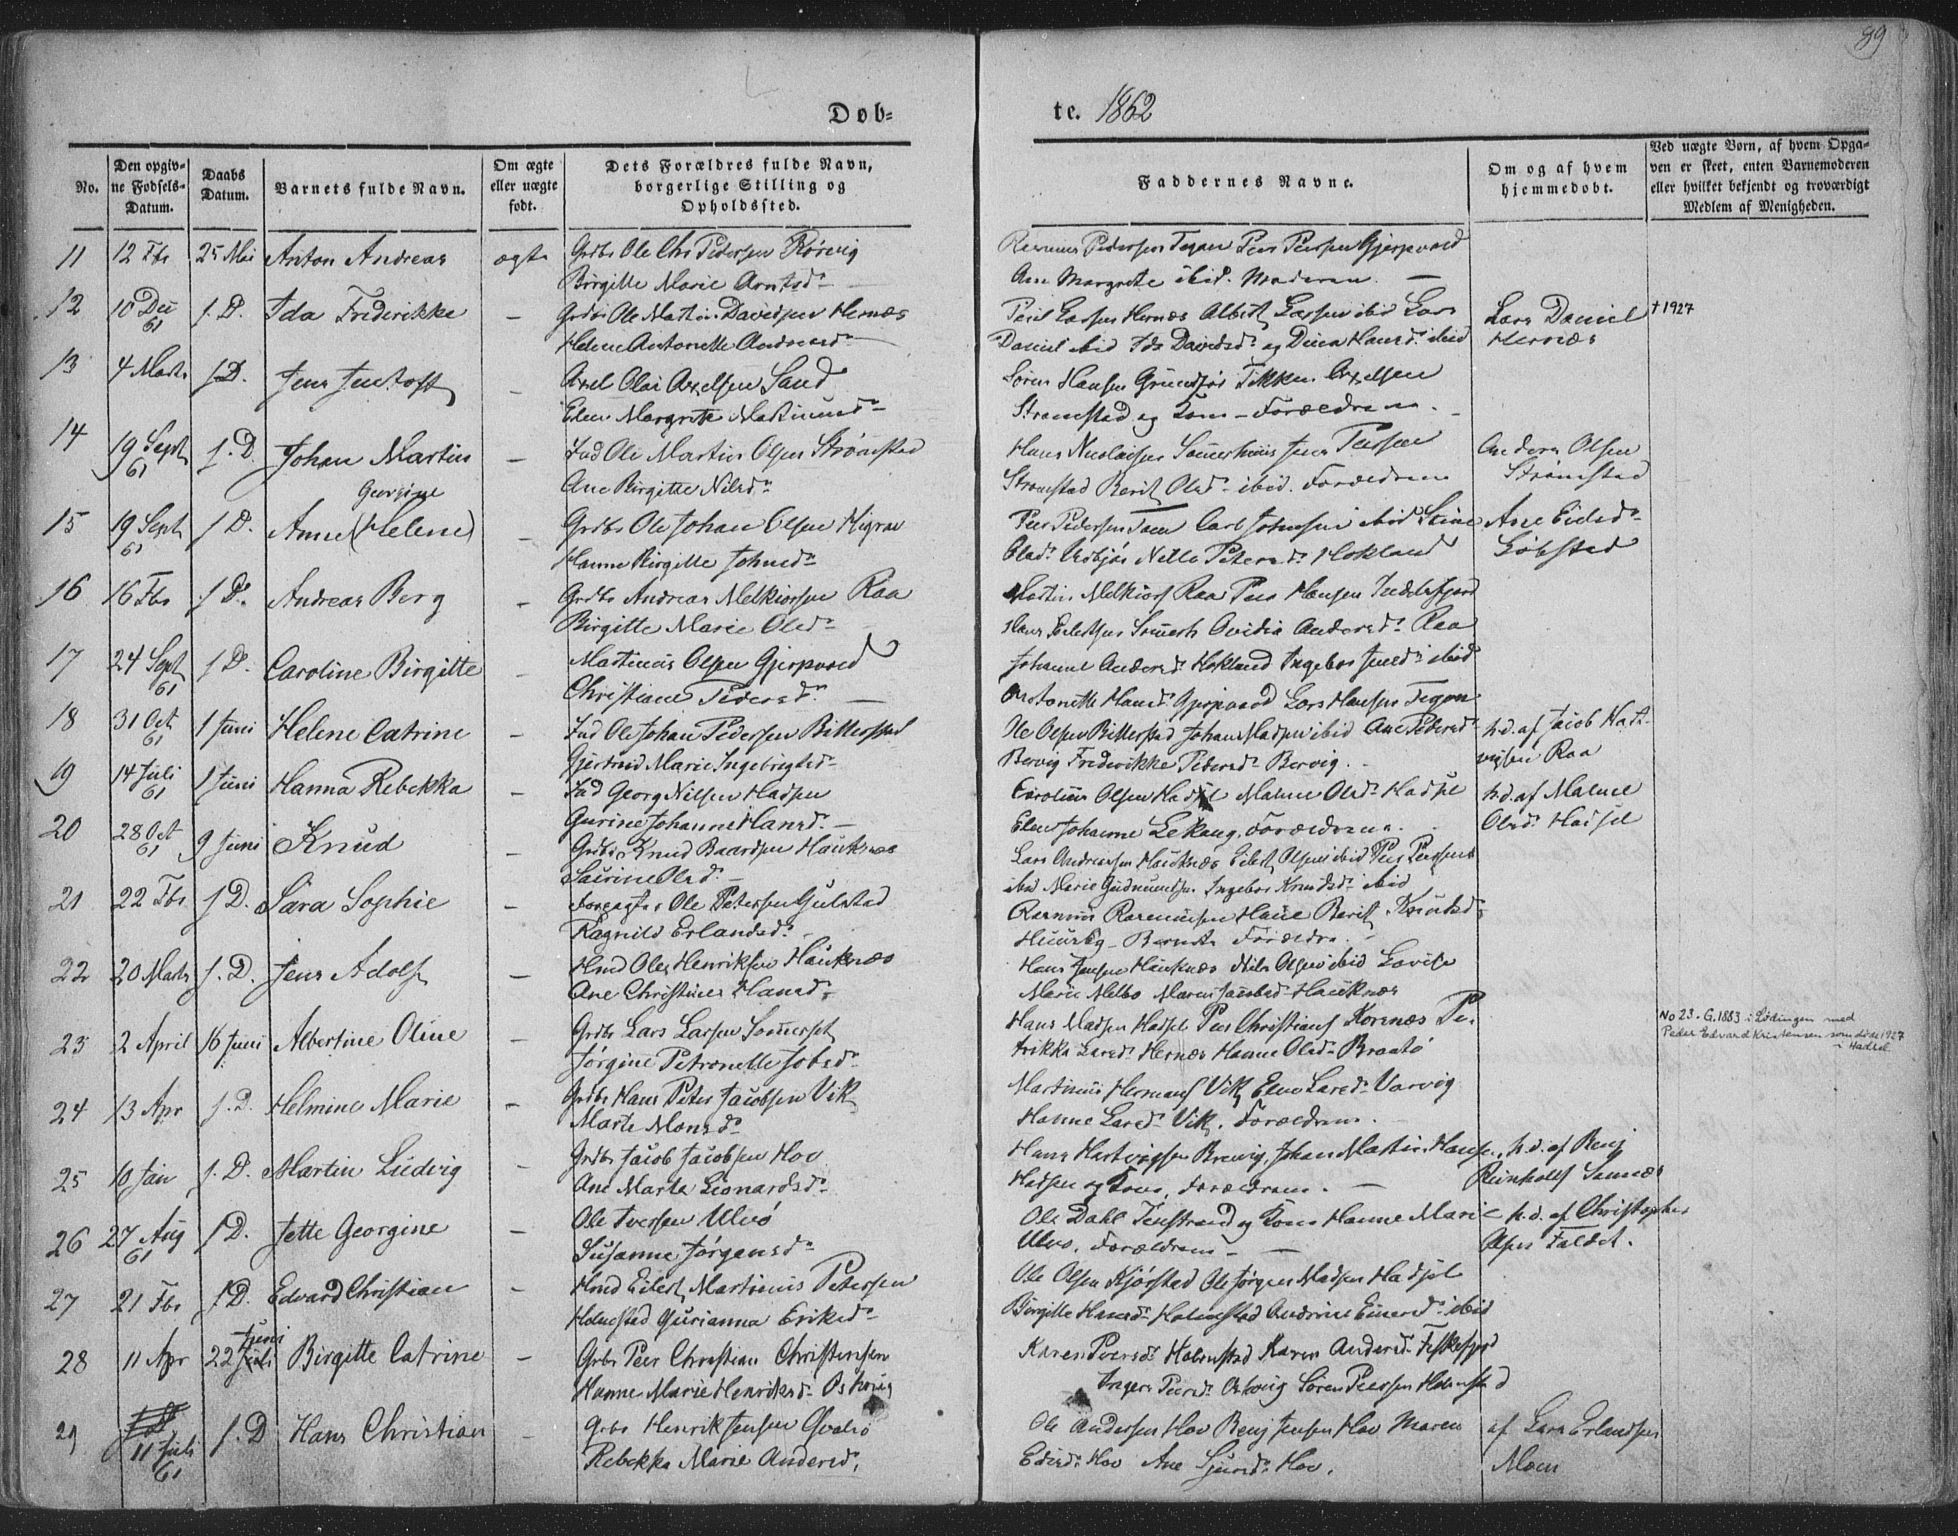 89
Døb=
te. 1862
No.
Den opgiv-
ne Fødsels-
Datum.
Daabs
Datum.
Barnets fulde Navn.
Om ægte
eller uægte
født.
Dets Forældres fulde Navn,
borgerlige Stilling og
Opholdssted.
Faddernes Navne.
Om og af hvem
hjemmedøbt.
Ved uægte Børn, af hvem Opga-
ven er skeet, enten Barnemoderen
eller hvilket bekjendt og troværdigt
Medlem af Menigheden.
11 12 Fbr 25 Mai Anton Andreas ægte Grdbr Ole Chr Pedersen Rørvig
Birgitte Marie Arntsd.
Rasmus Pedersen Tegan Peer Peersen Gjerpvold
Ane Margrete ibid. Moderen —
12 10 Dec 61 f. D. Ida Frederikke — Grdbr Ole Mathis Davidsen Hernæs
Helene Antonette Andreasd.
Larsen Hernæs Albert Larsen ibid Lars
Daniel ibid Ida Davidsd. og Dina Hansd. ibid
Lars Daniel
Hernæs
† 1927
13 4 Marts f D. Jens Jentoft — Axel Olai Axelsen Sand
Elen Margrete Martinusd.
Søren Hansen Grundfør Axelsen
Strømstad og Kone — Forældrene.
14 19 Sept 61 f. D. Johan Martin — Ind Ole Martin Olsen Strømstad
Ane Birgitte Nilsd.
Hans Nicolaisen Jens Peersen
Strømstad Berit Olsd. ibid. Forældrene
Anders Olsen
Strømstad
15 19 Sept 61 f D. Anne (Helene) Georgine — Grdbr Ole Johan Olsen Higrav
Hanne Birgitte Johnsd.
Peer Pedersen Carl Johnsen ibid Stine
Olsd. Nelle Petersd. Hokland
Ane Eidisd.
16 16 Fbr f D. Andreas Berg — Grdbr Andreas Melkiorsen Raa
Birgitte Marie Olsd.
Martin Melkiors Raa Peer Hansen Indelefjord
Hans Eilertsen Ovidia Andersd. Raa
17 24 Sept 61 f D. Caroline Birgitte — Martinus Olsen Gjerpvold
Christiane Pedersd. —
Johanne Andersd. Hokland Ingebor ibid
Antonette Hansd. Gjerpvold Lars Hansen Tegan
18 31 Oct 61 1 Juni Helene Catrine — Ind Ole Johan Pedersen Bitterstad
Gjertrud Marie Ingebrigtsd.
Ole Olsen Bitterstad Johan Madsen ibid Ane Pedersd.
Bervig Frederikke Pedersd. Bervig.
h.d. af Jacob Hart-
vigsen Raa
19 14 Juli 61 1 Juni Hanna Rebekka — Ind Georg Nilsen Hadsel
Gurine Johanne Hansd. —
Carolius Olsen Hadsel Malene Olsd. Hadsel
Elen Johanne Lekang, Forældrene.
h.d. af Malene
Olsd. Hadsel
20 28 Oct 61 9 Juni Knud — Grdbr Knud Baardsen Hauknæs
Laurine Olsd. —
Lars Andreasen Hauknæs Eilert Olsen ibid Peer Peersen
ibid Marie Gudmundsn. Ingebor Knudsd. ibid
21 22 Fbr f D. Sara Sophie — Ole Petersen Gulstad
Ragnild Erlandsd.
Rasmus Rasmussen Haue Berit Knutsd.
Berndt Forældre.
22 20 Marts f. D. Jens Adolf — Hmd Ole Henriksen Hauknæs
Ane Christine Hansd.
Hans Jensen Hauknæs Nils Olsen ibid Lovise
Marie Melbo Maren Jacobsd. Hauknæs
23 2 April 16 Juni Albertine Oline — Grdbr Lars Larsen Sommerset
Jørgine Petronelle Jobsd.
Hans Madsen Hadsel Peer Christians Kornæs Pe-
trikke Larsd. Hernæs Hanne Olsd. Braatø
No 23. G. 1883 i Lødingen med
Peder Edvard Kristensen som døde 1927
i Hadsel
24 13 Apr f. D. Helmine Marie — Grdbr Hans Peter Jacobsen Vik
Marte Monsd.
Martinus Hermans Vik Elen Larsd. Varvig
Hanne Larsd. Vik. Forældrene.
25 10 Jan f. D. Martin Ludvig — Grdbr Jacob Jacobsen Hov
Ane Marta Leonardsd.
Hans Hartvigsen Brevig, Johan Martin Hansen
Hadsel og Kone, Forældrene. —
h.d. af Benj
Reinholdt Sannæs
26 27 Aug 61 f D. Jette Georgine — Ole Iversen Ulvø
Susanne Jørgensd.
Ole Dahl og Kone Hanne Marie
Ulvø, Forældrene —
h.d. af Christopher
Olsen Faldet.
27 21 Fbr f D. Edvard Christian — Hmd Eilert Martinus Petersen
Holmstad Gurianna Eriksd.
Ole Olsen Kjørstad Ole Jørgen Madsen Hadsel
Birgitte Hansd. Holmstad Andrine Einersd. ibid
28 11 Apr 22 Juni Birgitte Catrine — Grbr Peer Christian Christensen
Hanne Marie Henriksd. Osvig
Karen Peersd. Holmstad Karen Andersd. Fiskefjord
Inger Peersd. Osvig Søren Peersen Holmstad
29 11 Juli 61 f. D Hans Christian — Grbr Henrik Jensen Qvalø
Rebekka Marie Andersd.
Ole Andersen Hov Benj Jensen Hov Maren
Edisd. Hov Ane Sjursd. Hov.
af Lars Erlandsen
Moen